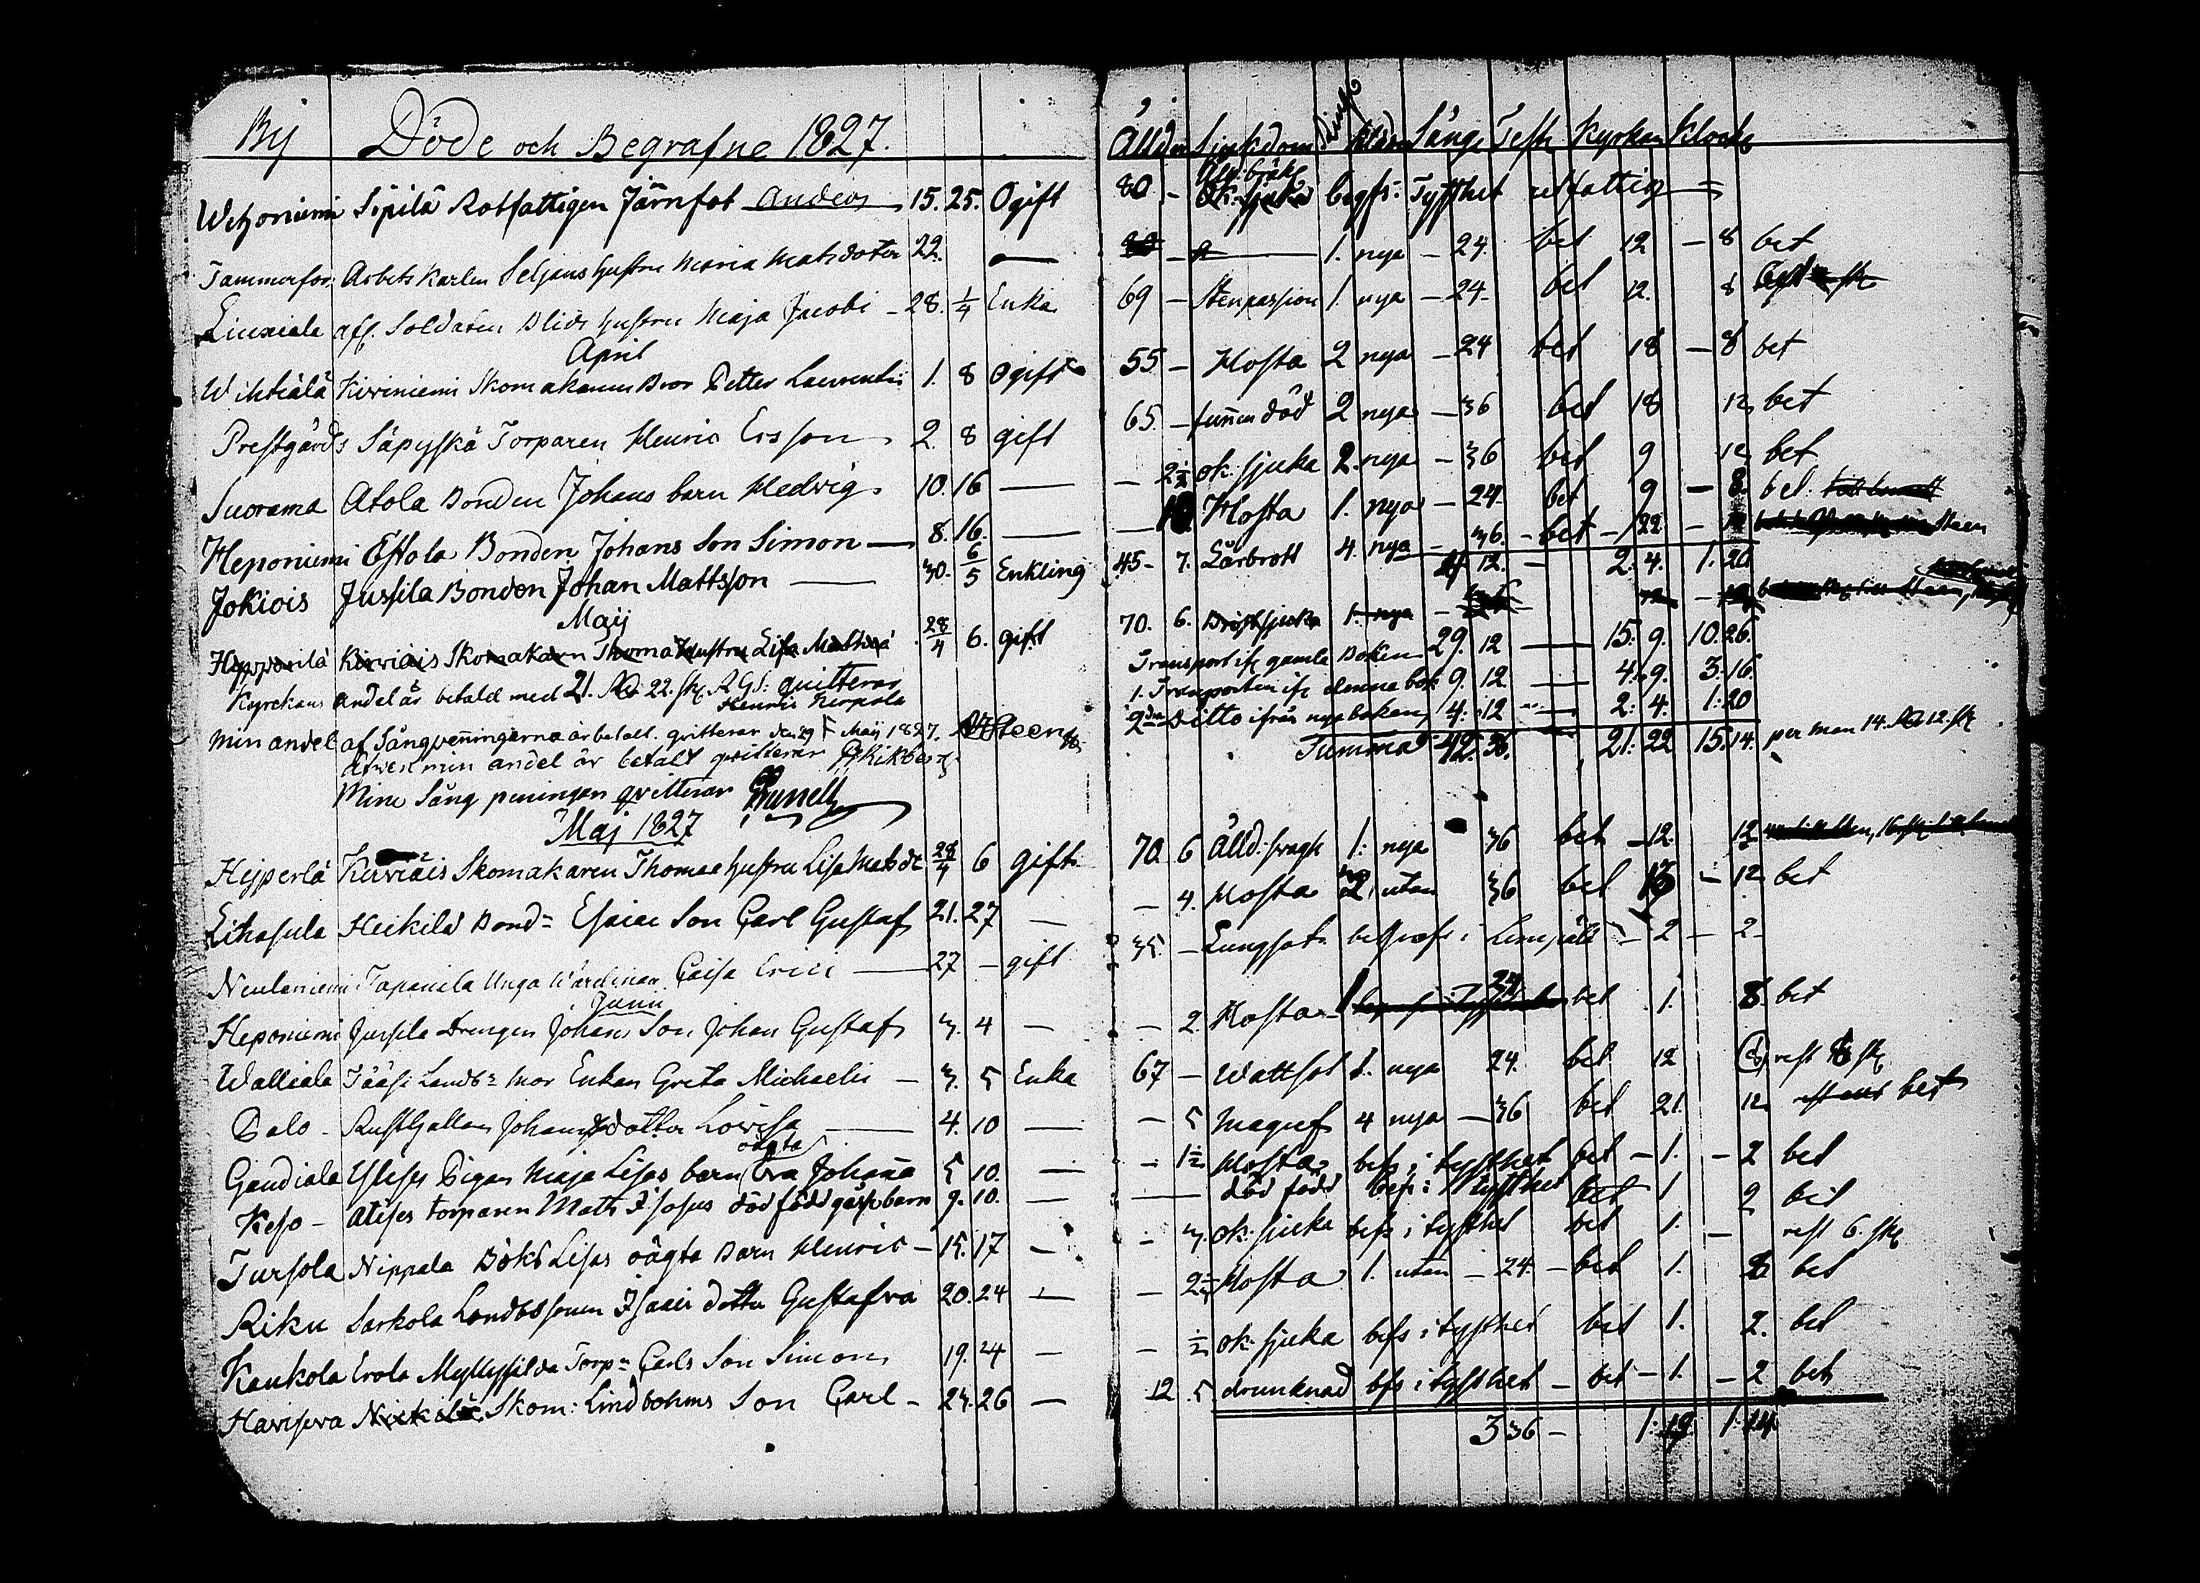 By Döde och Begrafne 1827. Ålldr Sjukdom Kläde Sång Testm Kyrkan Klock
Wehoniemi Sipilä Rotfattigen Järnfot Anders 15. 25. Ogift 80 - begfs: Tysthet utfattig
Tammerfor Arbets Karlen Seljans hustru Maria Matsdoter 22. — 1. nya - 24. bet 12 - 8 bet
Liuxiala aff. Soldaten Blids hustru Maja Jacobi - 28. 1/4 Enka 69 - Stenpassion 1. nya - 24. bet 12. 8
April
Wihtiälä Kiviniemi Skomakarens Bror Petter Laurentii 1. 8 Ogift 55 - Hosta 2 nya - 24 bet 18 - 8 bet
Prestgårds Säpyskä Torparen Henric Ersson 2. 8 gift 65. - funnen död 2 nya - 36 bet 18 12 bet
Suorama Atola Bonden Johans barn Hedvig 10. 16 — - 2 1/2 ok: sjuka 2. nya - 36 bet 9 12 bet
Heponiemi Eskola Bonden Johans Son Simon — 8. 16. — Hosta 1. nya - 24. bet 9 - 8 bet.
Jokiois Jussila Bonden Johan Mattsson — 30. 6/5 Enkling 45 - 7. Lårbrott 4. nya - 36. - bet - 22 -
12. - 2. 4. 1. 20
Maij
Hyppärilä Kirviäis Skomakarn Thoma Hustru Lisa 28/4 6. gift 70. 6. Bröstsjuka 1. nya
Kyrckans andel är betald med 21. Rd 22. sk R.Gs: quitterar Transport ifr gamla Boken 29. 12 — 15. 9. 10. 26.
Henric
1. Transporten ifr denna bok 9. 12. — 4. 9. 3. 16.
min andel af Sångpenningarna är betalt. qvitterar den 29 Maij 1827. 2dn Ditto ifrån nya boken 4. 12 — 2: 4. 1: 20
äfven min andel är betalt qvitterar Summa 42. 36. 21: 22 15. 14. per man 14. Rd 12. sk
Mine Sång peningar qvitterar
Maj 1827
Hyperlä Kirviäis Skomakaren Thomae hustru Lisa Matsdr 28/4 6 gift 70. 6 Ålld: svagh 1: nya 36 bet - 12. 12
Lihasula Heikilä Bond= Esaiae Son Carl Gustaf 21. 27 — - 4. Hosta 2. utan 36 bet - 12 bet
Neulaniemi Tapanila Unga Wärdinan Caisa Erici — 27 - gift 35. - Lungsot begrafs i Lempälä - 2 - 2
Junii
Heponiemi Jussila Drengen Johans Son Johan Gustaf 3. 4 — - 2. Hosta 1 32 bet 1. 8 bet
Walliala Jääsi Landb= mor Enkan Greta Michaelis - 3. 5 Enka 67 - Wattsot 1. nya 24. bet 12 8 rest sk
Palo - Rusthållan Johans dotter Lovisa — 4. 10 — - 5 Maguef 4 nya - 36 bet 21. 12 bet
oägta
Gaudiala Ylises Pigan Maja Lisas barn Eva Johanna 5 10. — - 1 1/2 Hosta befs i tysthet bet - 1. - 2 bet
Keso - Atises torparen Matts Isosus död född gåsse barn 9. 10. — — död född befs i tysthet bet 1 2 bet
Tursola Nippala Böks Lisas oägta Barn Henric - 15. 17 - - 3. ok: sjuka befs i tysthet bet 1. rest 6. sk
Riku Sarkola Landbssonen Isaacs dotter Gustafva 20. 24 — - Hosta 1. utan - 24. - bet 1. 8 bet
Kaukola Erola Myllysilda Torp= Carls Son Simon 19. 24 — - 1/2 ok: sjuka befs i tysthet bet 1. 2. bet
Havisevа Skom: Lindbohms Son Carl - 24. 26 — 12. 5 drunknad bfs i tysthet - bet - 1. - 2 bet
3 36 - 1: 19 1: 14.